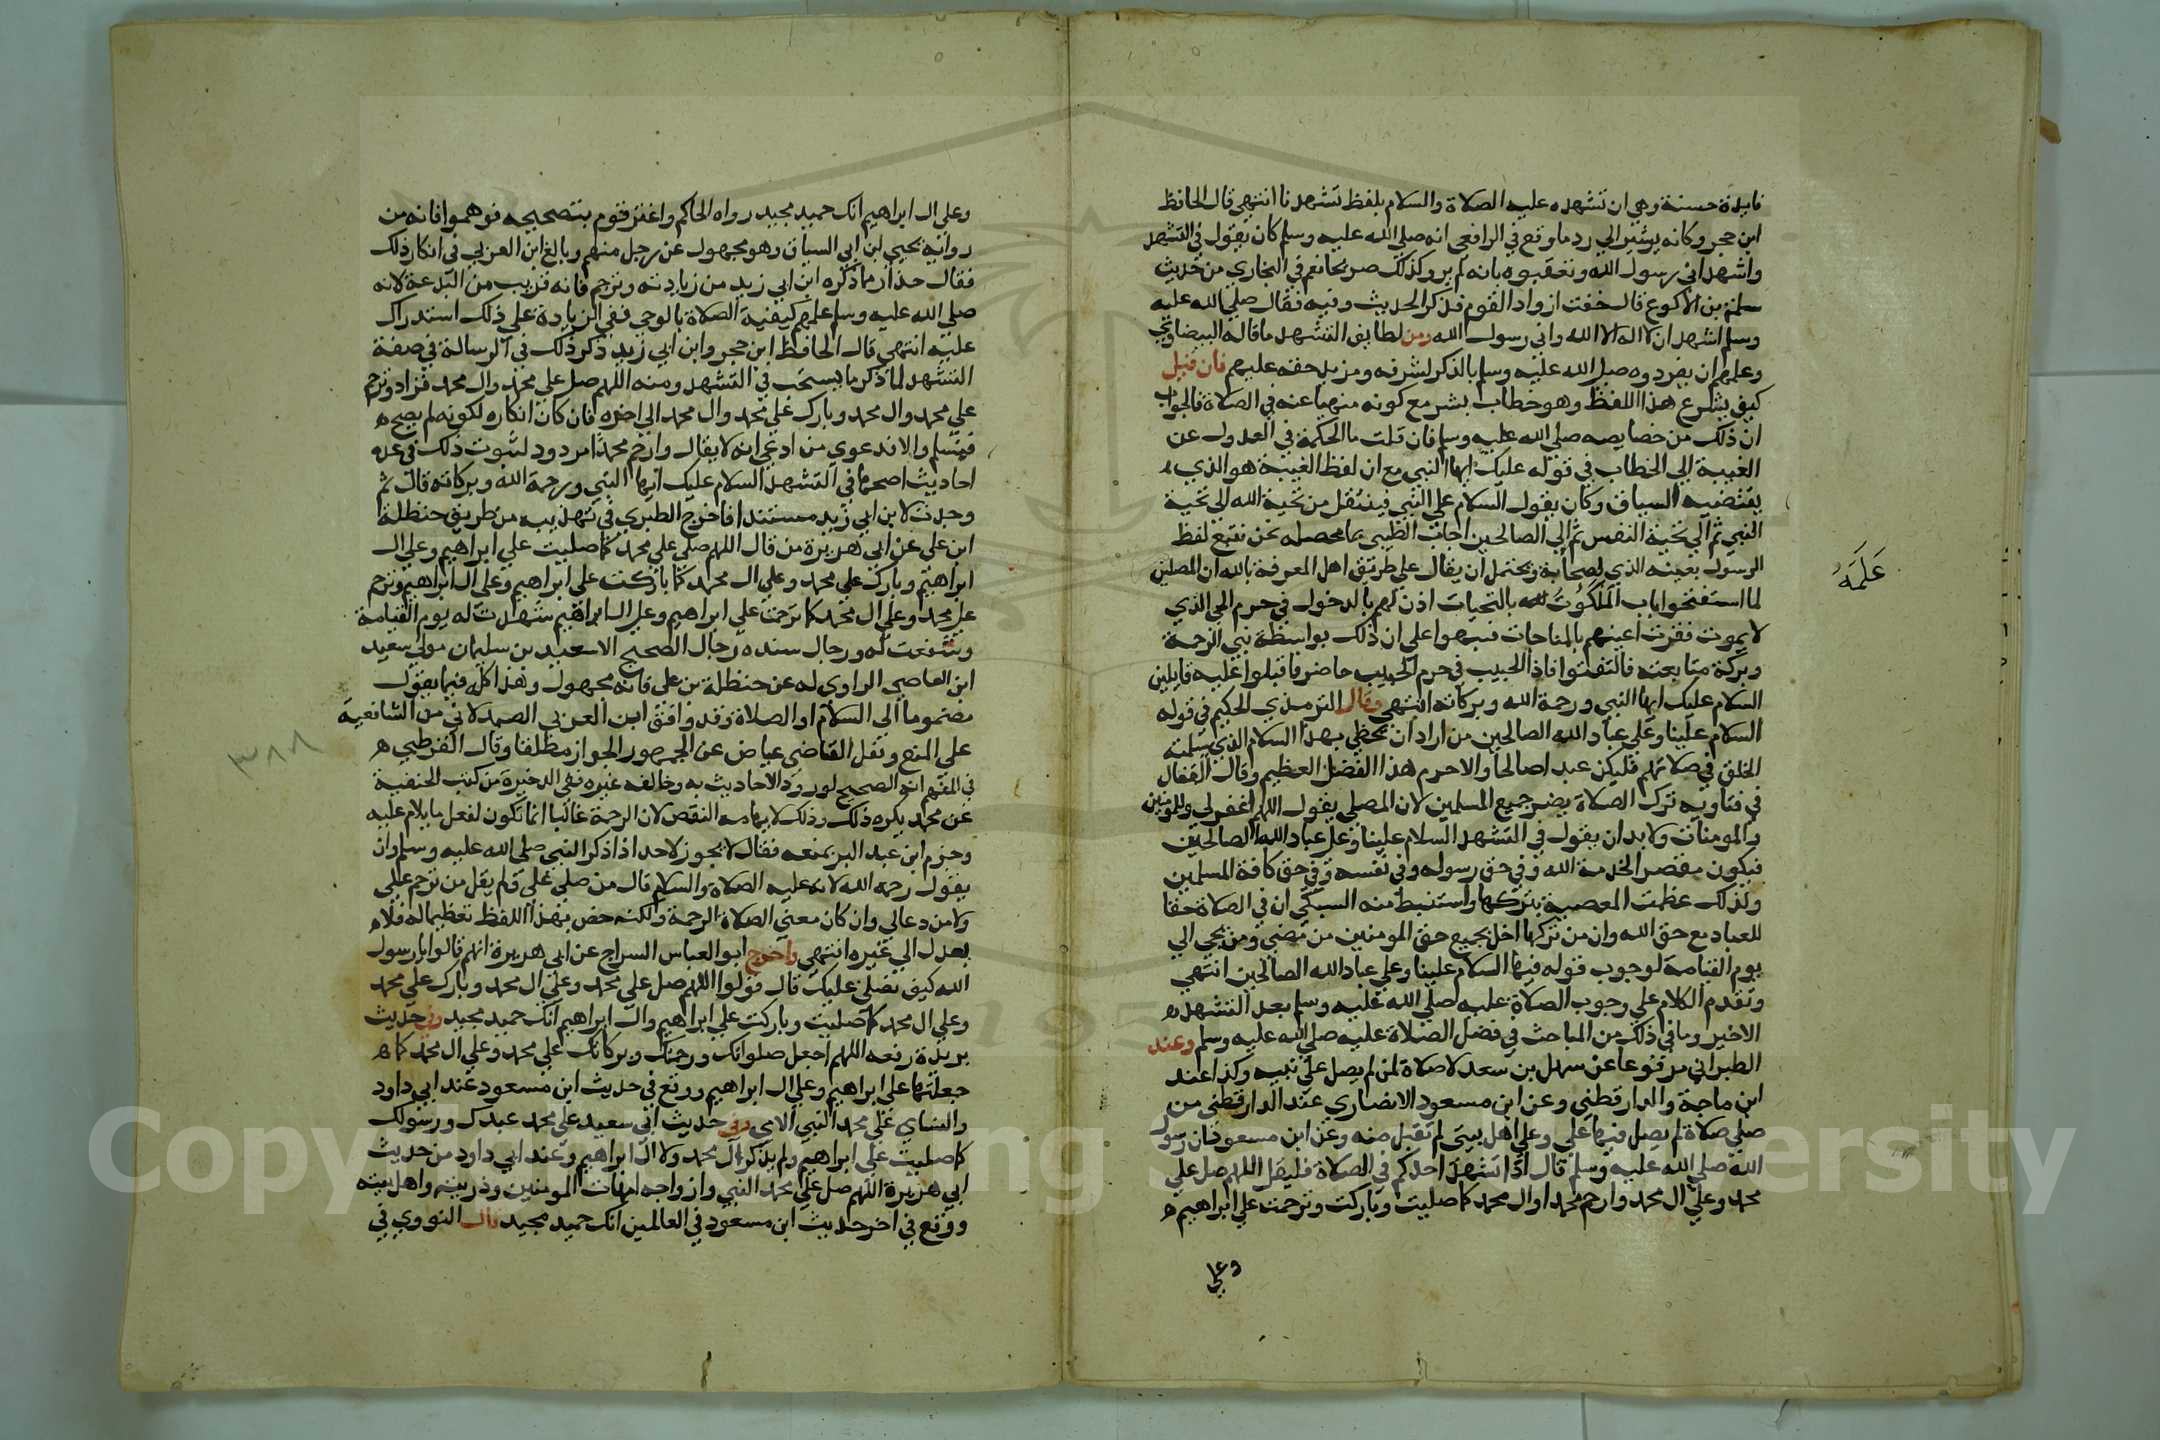 فايدة حسنة وهي ان تشهده عليه الصلاة والسلام بلفظ تشهدنا انتهي قال الحافظ
ابن حجر وكانه يشير الي رد ما وقع في الرافعي انه صلي الله عليه وسلم كان يقول في التشهد
واشهد اني رسول الله وتعقبوه بانه لم يرو كذلك صريحا نعم في البخاري من حديث
سلمة بن الاكوع قال خفت ازواد القوم فذكر الحديث وفيه فقال صلي الله عليه
وسلم اشهد ان لا اله الا الله واني رسول الله ومن لطايف التشهد ما قاله البيضاوي
وعلمهم ان يفردوه صلي الله عليه وسلم بالذكر لشرفه ومزيد حقه عليهم فان قيل
كيف يشرع هذا اللفظ وهو خطاب بشر مع كونه منهيا عنه في الصلاة فالجواب
ان ذلك من خصايصه صلي الله عليه وسلم فان قلت ما الحكمة في العدول عن
الغيبة الي الخطاب في قوله عليك ايها النبي مع ان لفظ الغيبة هو الذي
يقتضيه السياق وكان يقول السلام علي النبي فينتقل من تحية الله الي تحية
النبي ثم الي تحية النفس ثم الي الصالحين اجاب الطيبي بما محصله نحن نتبع لفظ
الرسول بعينه الذي للصحابة ويحتمل ان يقال علي طريق اهل المعرفة بالله ان المصلين
علمه
لما استفتحوا باب الملكوت بالتحيات اذن لهم بالدخول في حرم الحي الذي
لا يموت فقرت اعينهم بالمناجات فنبهوا علي ان ذلك بواسطة نبي الرحمة
وبركة متابعته فالتفتوا فاذا الحبيب في حرم الحبيب حاضر فاقبلوا عليه قايلين
السلام عليك ايها النبي ورحمة الله وبركاته انتهي وقال الترمذي الحكيم في قوله
السلام علينا وعلي عباد الله الصالحين من اراد ان يحظي بهذا السلام الذي يسلمه
الخلق في صلاتهم فليكن عبدا صالحا والا حرم هذا الفضل العظيم وقال القفال
في فتاويه ترك الصلاة يضر جميع المسلمين لان المصلي يقول اللهم اغفر لي وللمومنين
والمومنات ولا بد ان يقول في التشهد السلام علينا وعلي عباد الله الصالحين
فيكون مقصرا لخدمة الله وفي حق رسوله وفي نفسه وفي حق كافة المسلمين
ولذلك عظمت المعصية بتركها واستنبط منه السبكي ان في الصلاة حقا
للعباد مع حق الله وان من تركها اخل بجميع حق المومنين من مضي ومن يجي الي
يوم القيامة لوجوب قوله فيها السلام علينا وعلي عباد الله الصالحين انتهي
وتقدم الكلام علي وجوب الصلاة عليه صلي الله عليه وسلم بعد التشهد
الاخير وما في ذلك من المباحث في فضل الصلاة عليه صلي الله عليه وسلم وعند
الطبراني مرفوعا عن سهل بن سعد لا صلاة لمن لم يصل علي نبيه وكذا عند
ابن ماجة والدارقطني وعن ابن مسعود الانصاري عند الدارقطني من
صلي صلاة لم يصل فيها علي وعلي اهل بيتي لم تقبل منه وعن ابن مسعود ان رسول
الله صلي الله عليه وسلم قال اذا تشهد احدكم في الصلاة فليقل اللهم صل علي
محمد وعلي ال محمد وارحم محمدا وال محمد كما صليت وباركت وترحمت علي ابراهيم
وعلي
وعلي ال ابراهيم انك حميد مجيد رواه الحاكم واغتر قوم بتصحيحه فوهموا فانه من
رواية يحيي ابن ابي السباق وهو مجهول عن رجل منهم وبالغ ابن العربي في انكار ذلك
فقال حذار مما ذكره ابن ابي زيد من زيادته وترحم فانه قريب من البدعة لانه
صلي الله عليه وسلم علمهم كيفية الصلاة بالوحي ففي الزيادة علي ذلك استدراك
عليه انتهي قال الحافظ ابن حجر وابن ابي زيد ذكر ذلك في الرسالة في صفة
التشهد لما ذكر ما يستحب في التشهد ومنه اللهم صل علي محمد وال محمد فزاد وترحم
علي محمد وال محمد وبارك علي محمد وال محمد الي اخره فان كان انكاره لكونه لم يصح
فمسلم والا فدعوي من ادعي انه لا يقال وارحم محمدا مردود لثبوت ذلك في عدة
احاديث اصحها في التشهد السلام عليك ايها النبي ورحمة الله وبركاته قال ثم
وجدت لابن ابي زيد مستندا فاخرج الطبري في تهذيبه من طريق حنظلة
ابن علي عن ابي هريرة من قال اللهم صلي علي محمد كما صليت علي ابراهيم وعلي ال
ابراهيم وبارك علي محمد وعلي ال محمد كما باركت علي ابراهيم وعلي ال ابراهيم وترحم
علي محمد وعلي ال محمد كما ترحمت علي ابراهيم وعلي ال ابراهيم شهدت له يوم القيامة
وشفعت له ورجال سنده رجال الصحيح الا سعيد بن سليمان مولي سعيد
ابن العاصي الراوي له عن حنظلة بن علي فانه مجهول وهذا كله فيما يقول
مضموما الي السلام او الصلاة وقد وافق ابن العربي الصيدلاني من الشافعية
٣٨٨
علي المنع ونقل القاضي عياض عن الجمهور الجواز مطلقا وقال القرطبي
في المفهم انه الصحيح لورود الاحاديث به وخالفه غيره ففي الذخيرة من كتب الحنفية
عن محمد يكره ذلك وذلك لايهامه النقص لان الرحمة غالبا انما تكون لفعل ما يلام عليه
وجزم ابن عبد البر بمنعه فقال لا يجوز لاحد اذا ذكر النبي صلي الله عليه وسلم ان
يقول رحمه الله لانه عليه الصلاة والسلام قال من صلي علي ولم يقل من ترحم علي
ولا من دعا لي وان كان معني الصلاة الرحمة ولكنه خص بهذا اللفظ تعظيما له فلا
يعدل الي غيره انتهي واخرج ابو العباس السراج عن ابي هريرة انهم قالوا يا رسول
الله كيف نصلي عليك قال قولوا اللهم صل علي محمد وعلي ال محمد وبارك علي محمد
وعلي ال محمد كما صليت وباركت علي ابراهيم وال ابراهيم انك حميد مجيد وفي حديث
بريدة رفعه اللهم اجعل صلواتك ورحمتك وبركاتك علي محمد وعلي ال محمد كما
جعلتها علي ابراهيم وعلي ال ابراهيم ووقع في حديث ابن مسعود عند ابي داود
والنساي علي محمد النبي الامي وفي حديث ابي سعيد علي محمد عبدك ورسولك
كما صليت علي ابراهيم ولم يذكر ال محمد ولا ال ابراهيم وعند ابي داود من حديث
ابي هريرة اللهم صل علي محمد النبي وازواجه امهات المومنين وذريته واهل بيته
ووقع في اخر حديث ابن مسعود في العالمين انك حميد مجيد قال النووي في